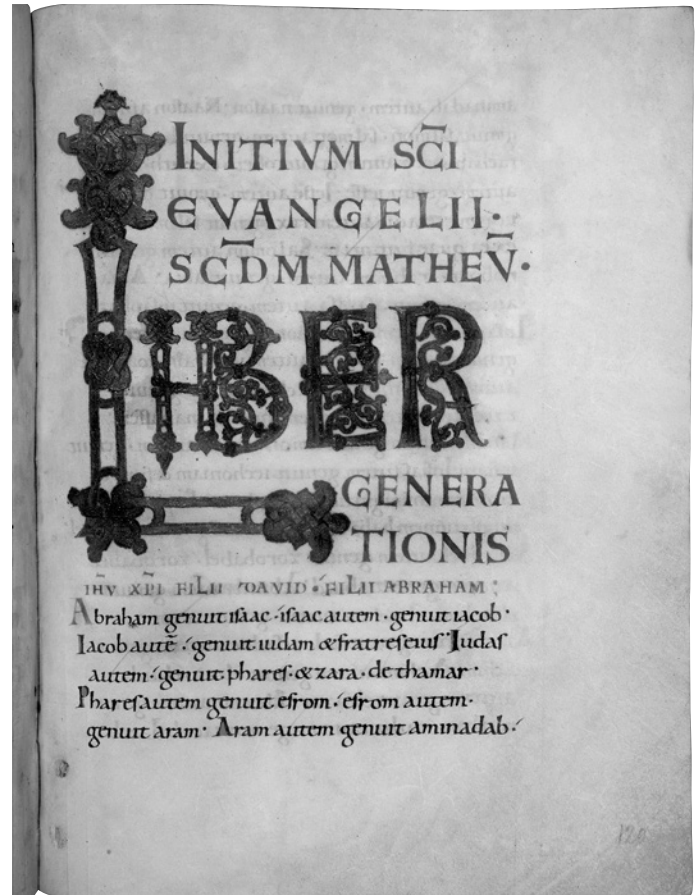 INITIVM SC̄I
EVANGELII·
SCD̄M MATHEV̄·
LIBER
GENERA
TIONIS
IHV̄ XP̄I FILII DAVID · FILII ABRAHAM ;
Abraham genuit isaac · isaac autem · genuit iacob ·
Iacob autē · genuit iudam & fratres eius Iudas
autem · genuit phares · & zara · de thamar ·
Phares autem genuit esrom · esrom autem ·
genuit aram · Aram autem genuit aminadab ·
120